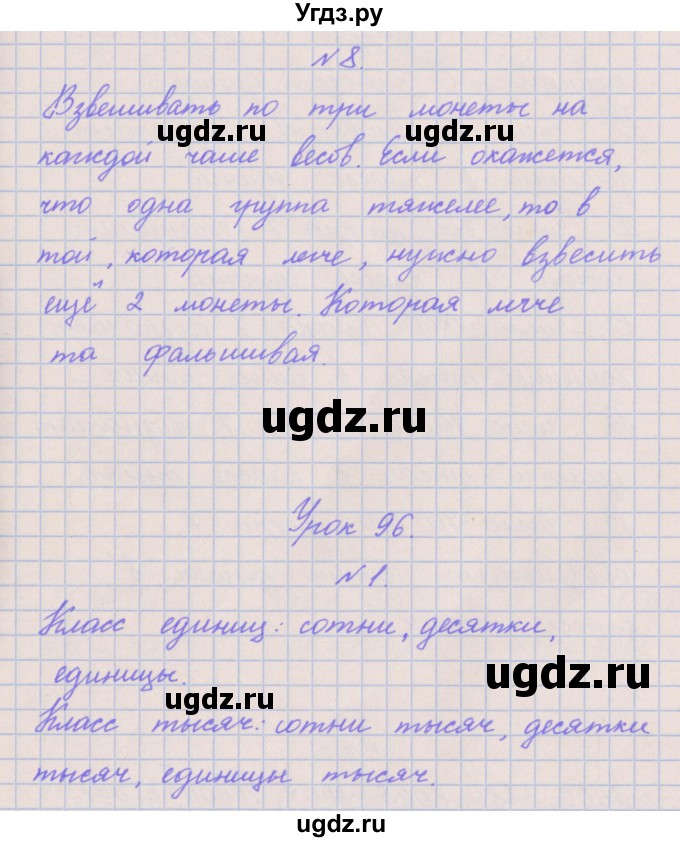 Угдз.ру
№8.
Взвешивать по три монеты на
ugdz.ru ugdz.ru
каждой чаше весов. Если окажется,
что одна группа тяжелее, то в
той, которая легче, нужно взвесить
ещё 2 монеты. Которая легче
та фальшивая.
ugdz.ru
Урок 96.
№1.
Класс единиц: сотни, десятки,
единицы.
ugdz.ru
ugdz.ru
Класс тысяч: сотни тысяч, десятки
тысяч, единицы тысяч.
ugdz.ru